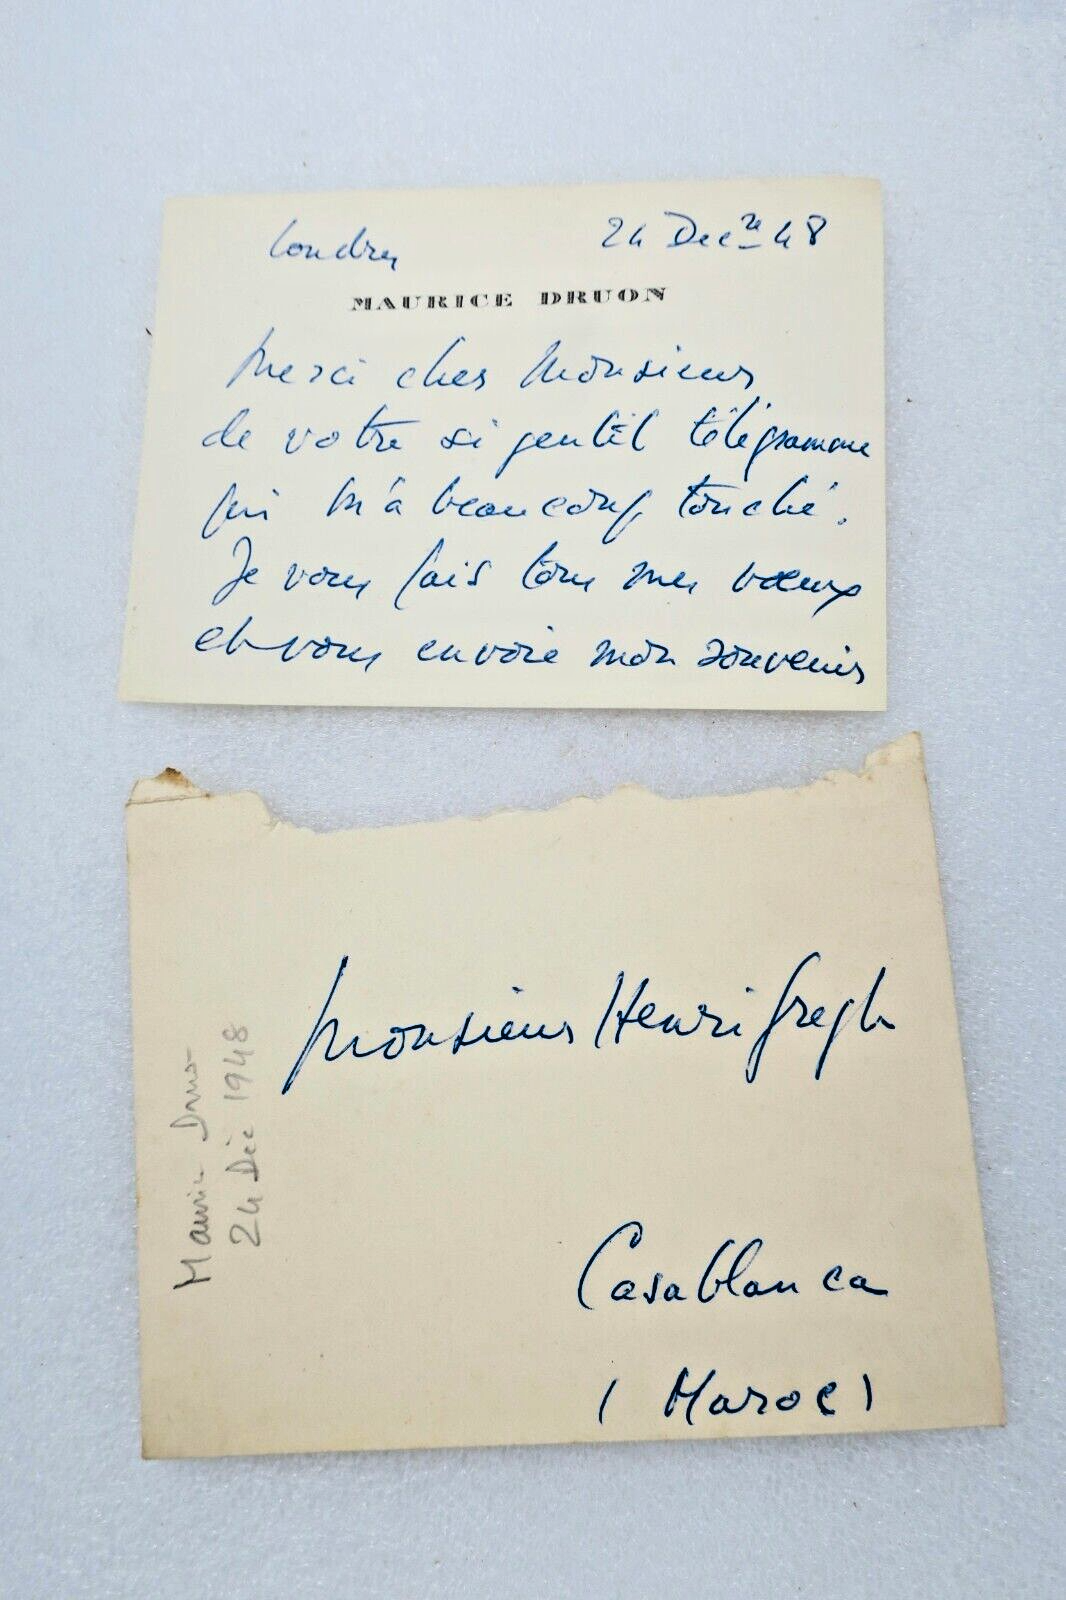 Londres 24 Dec.re 48
MAURICE DRUON
Merci cher Monsieur
de votre si gentil télégramme
qui m'a beaucoup touché.
Je vous fais tous mes vœux
et vous envoie mon souvenir
Monsieur Henri Gregh
Casablanca
(Maroc)
Maurice Druon
24 Déc 1948